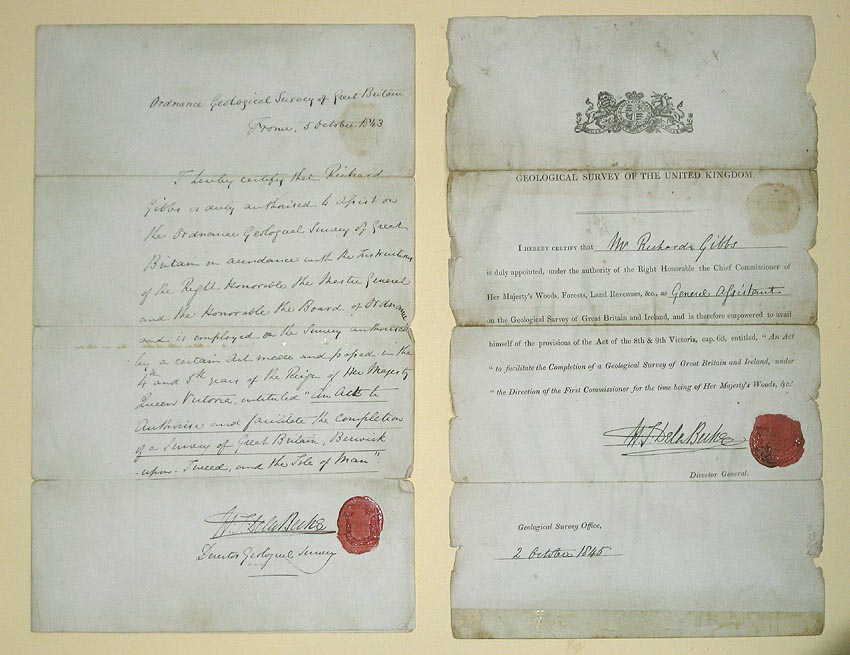 Ordnance Geological Survey of Great Britain
Frome, 5 October 1843
I hereby certify that Richard
Gibbs is duly authorised to assist on
the Ordnance Geological Survey of Great
Britain in accordance with the Instructions
of the Right Honorable the Master General
and the Honorable the Board of Ordnance
and is employed on the Survey authorised
by a certain Act made and passed in the
4th and 5th years of the Reign of Her Majesty
Queen Victoria, entituled "An Act to
Authorise and facilitate the Completion
of a Survey of Great Britain, Berwick
upon Tweed, and the Isle of Man"
H T De la Beche
Director Geological Survey
GEOLOGICAL SURVEY OF THE UNITED KINGDOM
I HEREBY CERTIFY that Mr Richard Gibbs
is duly appointed, under the authority of the Right Honorable the Chief Commissioner of
Her Majesty's Woods, Forests, Land Revenues, &c., as General Assistant
on the Geological Survey of Great Britain and Ireland, and is therefore empowered to avail
himself of the provisions of the Act of the 8th & 9th Victoria, cap. 63, entitled, "An Act
"to facilitate the Completion of a Geological Survey of Great Britain and Ireland, under
"the Direction of the First Commissioner for the time being of Her Majesty's Woods, &c."
H T De la Beche
Director General.
Geological Survey Office,
2 October 1845